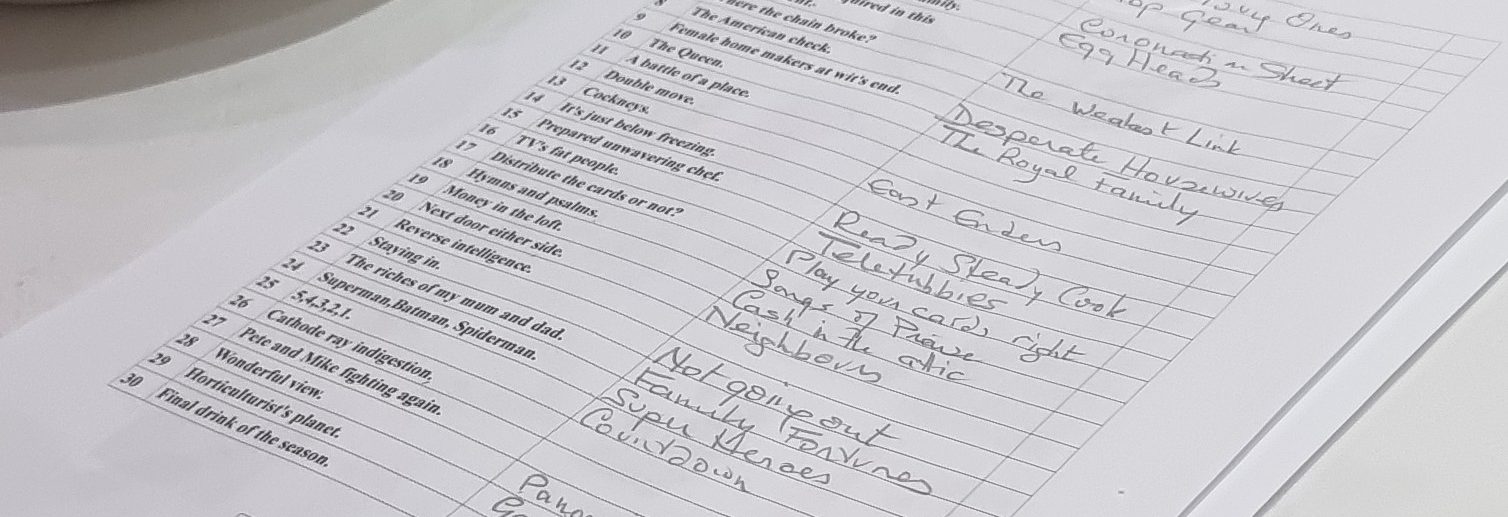 Ones
Gear
ired in this Coronation Street
Egg Heads
ere the chain broke? The Weakest Link
8 The American check.
9 Female home makers at wit's end. Desperate Housewives
10 The Queen. The Royal Family
11 A battle of a place.
12 Double move.
13 Cockneys. East Enders
14 It's just below freezing.
15 Prepared unwavering chef. Ready Steady Cook
16 TV's fat people. Teletubbies
17 Distribute the cards or not? Play your cards right
18 Hymns and psalms. Songs of Praise
19 Money in the loft. Cash in the attic
20 Next door either side. Neighbours
21 Reverse intelligence.
22 Staying in. Not going out
23 The riches of my mum and dad. Family Fortunes
24 Superman,Batman, Spiderman. Super Heroes
25 5,4,3,2,1. Countdown
26 Cathode ray indigestion.
27 Pete and Mike fighting again.
28 Wonderful view. Pano
29 Horticulturist's planet.
30 Final drink of the season.